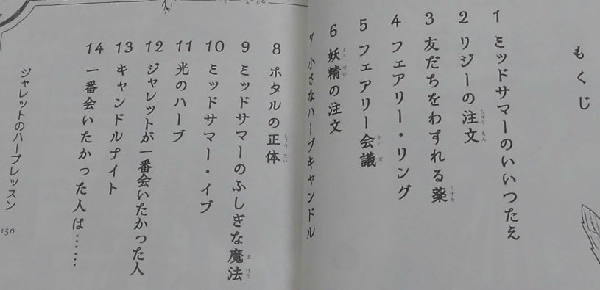 もくじ
1 ミッドサマーのいいつたえ
2 リジーの注文
3 友だちをわすれる薬
4 フェアリー・リング
5 フェアリー会議
6 妖精の注文
7 小さなハーブキャンドル
8 ホタルの正体
9 ミッドサマーのふしぎな魔法
10 ミッドサマー・イブ
11 光のハーブ
12 ジャレットが一番会いたかった人
13 キャンドルナイト
14 一番会いたかった人は……
ジャレットのハーブレッスン